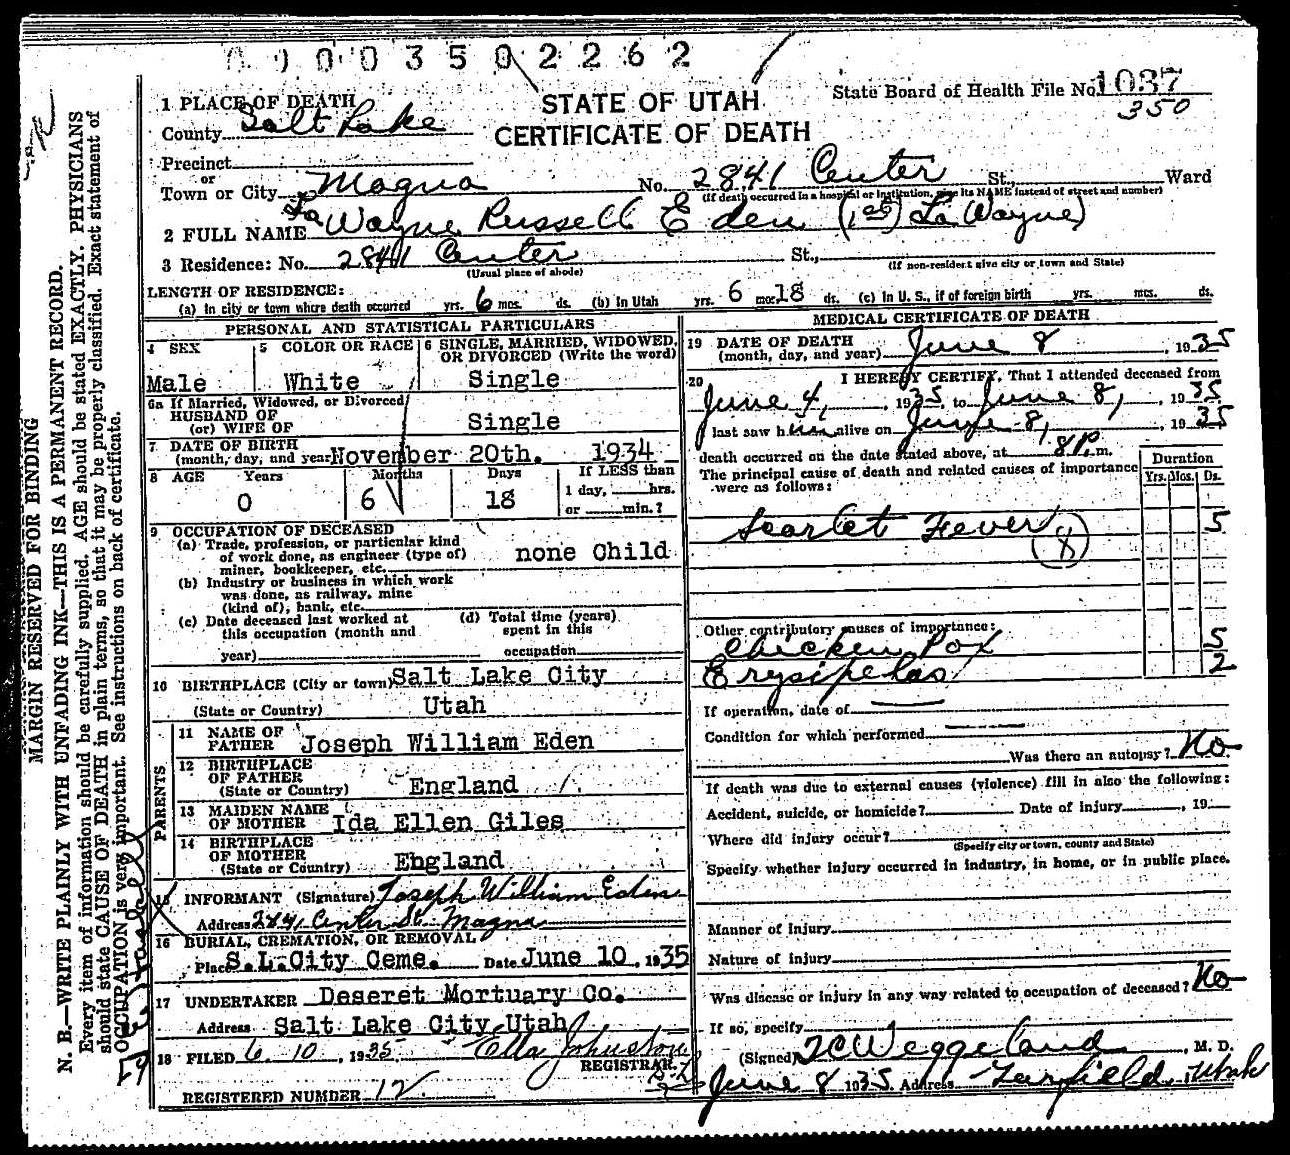 0 0 0 0 3 5 0 2 2 6 2
STATE OF UTAH
CERTIFICATE OF DEATH
State Board of Health File No. 1037
350
1 PLACE OF DEATH
County Salt Lake
Precinct
or
Town or City Magna No. 2841 Center St., Ward
(If death occurred in a hospital or institution, give its NAME instead of street and number)
2 FULL NAME La Wayne Russell Eden (1st) La Wayne)
3 Residence: No. 2841 Center St.,
(Usual place of abode) (If non-resident give city or town and State)
LENGTH OF RESIDENCE:
(a) In city or town where death occurred yrs. 6 mos. ds. (b) In Utah yrs. 6 mos. 18 ds. (c) In U. S., if of foreign birth yrs. mos. ds.
PERSONAL AND STATISTICAL PARTICULARS
4 SEX
Male
5 COLOR OR RACE
White
6 SINGLE, MARRIED, WIDOWED, OR DIVORCED (Write the word)
Single
6a If Married, Widowed, or Divorced
HUSBAND OF
(or) WIFE OF Single
7 DATE OF BIRTH
(month, day, and year) November 20th. 1934
8 AGE Years Months Days If LESS than
0 6 18 1 day, hrs.
or min.?
9 OCCUPATION OF DECEASED
(a) Trade, profession, or particular kind
of work done, as engineer (type of) none Child
miner, bookkeeper, etc.
(b) Industry or business in which work
was done, as railway, mine
(kind of), bank, etc.
(c) Date deceased last worked at
this occupation (month and
year)
(d) Total time (years)
spent in this
occupation
10 BIRTHPLACE (City or town) Salt Lake City
(State or Country) Utah
PARENTS
11 NAME OF
FATHER Joseph William Eden
12 BIRTHPLACE
OF FATHER
(State or Country) England
13 MAIDEN NAME
OF MOTHER Ida Ellen Giles
14 BIRTHPLACE
OF MOTHER
(State or Country) England
15 INFORMANT (Signature) Joseph William Eden
Address 2841 Center St. Magna
16 BURIAL, CREMATION, OR REMOVAL
Place S.L.City Ceme. Date June 10, 1935
17 UNDERTAKER Deseret Mortuary Co.
Address Salt Lake City Utah
18 FILED 6 10, 1935 Ella Johnston
REGISTRAR.
REGISTERED NUMBER 12
MEDICAL CERTIFICATE OF DEATH
19 DATE OF DEATH
(month, day, and year) June 8, 1935
20 I HEREBY CERTIFY, That I attended deceased from
June 4, 1935, to June 8, 1935
last saw him alive on June 8, 1935
death occurred on the date stated above, at 8 P. m.
The principal cause of death and related causes of importance
were as follows:
Duration
Yrs. Mos. Ds.
Scarlet Fever 5
(8)
Other contributory causes of importance:
Chicken Pox 5
Erysipelas 2
If operation, date of
Condition for which performed
Was there an autopsy? No
If death was due to external causes (violence) fill in also the following:
Accident, suicide, or homicide? Date of injury , 19
Where did injury occur?
(Specify city or town, county and State)
Specify whether injury occurred in industry, in home, or in public place.
Manner of injury
Nature of injury
Was disease or injury in any way related to occupation of deceased? No
If so, specify
(Signed) T C Weggeland, M. D.
June 8 1935 Address Garfield, Utah
MARGIN RESERVED FOR BINDING
N. B.—WRITE PLAINLY WITH UNFADING INK—THIS IS A PERMANENT RECORD.
Every item of information should be carefully supplied. AGE should be stated EXACTLY. PHYSICIANS
should state CAUSE OF DEATH in plain terms, so that it may be properly classified. Exact statement of
OCCUPATION is very important. See instructions on back of certificate.